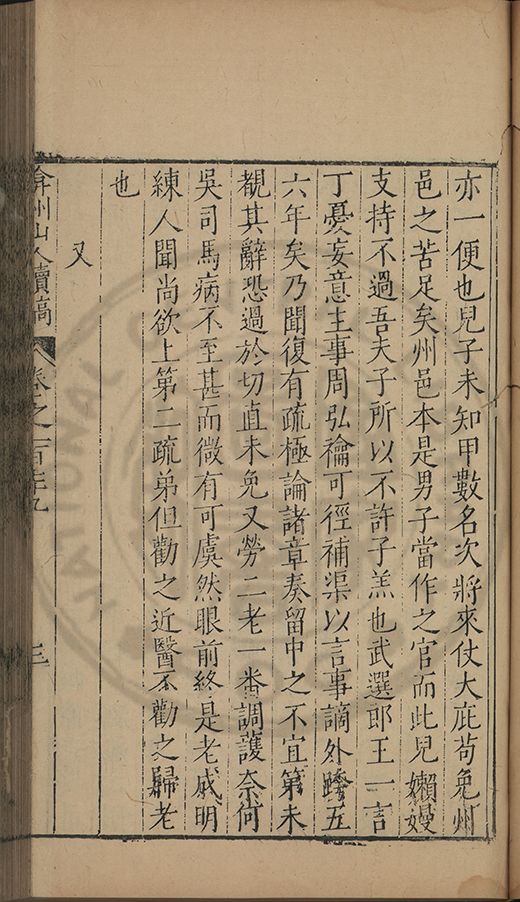 亦一便也兒子未知甲數名次將來仗大庇茍免州
邑之苦足矣州邑本是男子當作之官而此兒嬾嫚
支持不過吾夫子所以不許子羔也武選郎王一言
丁憂妄意主事周弘禴可徑補渠以言事謫外蹐五
六年矣乃聞復有疏極論諸章奏留中之不宜第未
覩其辭恐過於切直未免又勞二老一番調護奈何
吳司馬病不至甚而微有可虞然眼前終是老成明
練人聞尚欲上第二疏弟但勸之近醫不勸之歸老
也
又
弇州山人續稿 卷之一百七十九 三